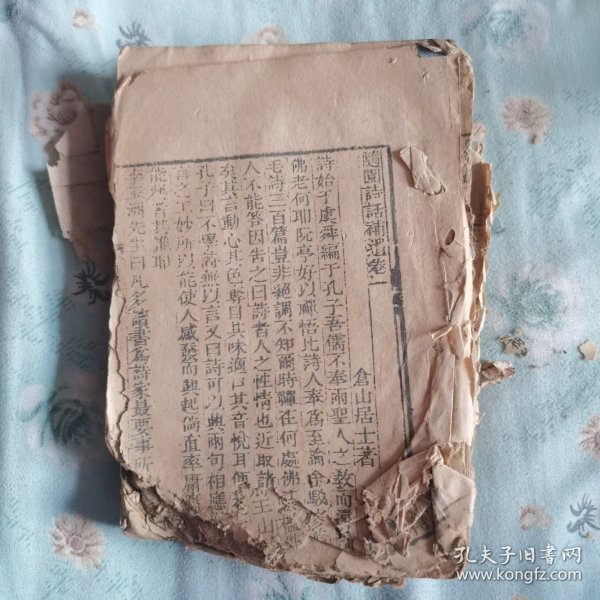 隨園詩話補遺卷一
倉山居士著
詩始于虞舜編于孔子吾儒不奉兩聖人之敎而
佛老何耶阮亭好以禪悟比詩人奉爲至論余駁
毛詩三百篇豈非絕調不知爾時禪在何處佛
人不能答因告之曰詩者人之性情也近取諸
矣其言動心其色奪目其味適口其音悅耳便
孔子曰不學詩無以言又曰詩可以興兩句相應
言之工妙所以能使人感發而興起倘直率庸
能興者其誰耶
李玉洲先生曰凡多讀書爲詩家最要事所
孔夫子旧书网
www.kongfz.com